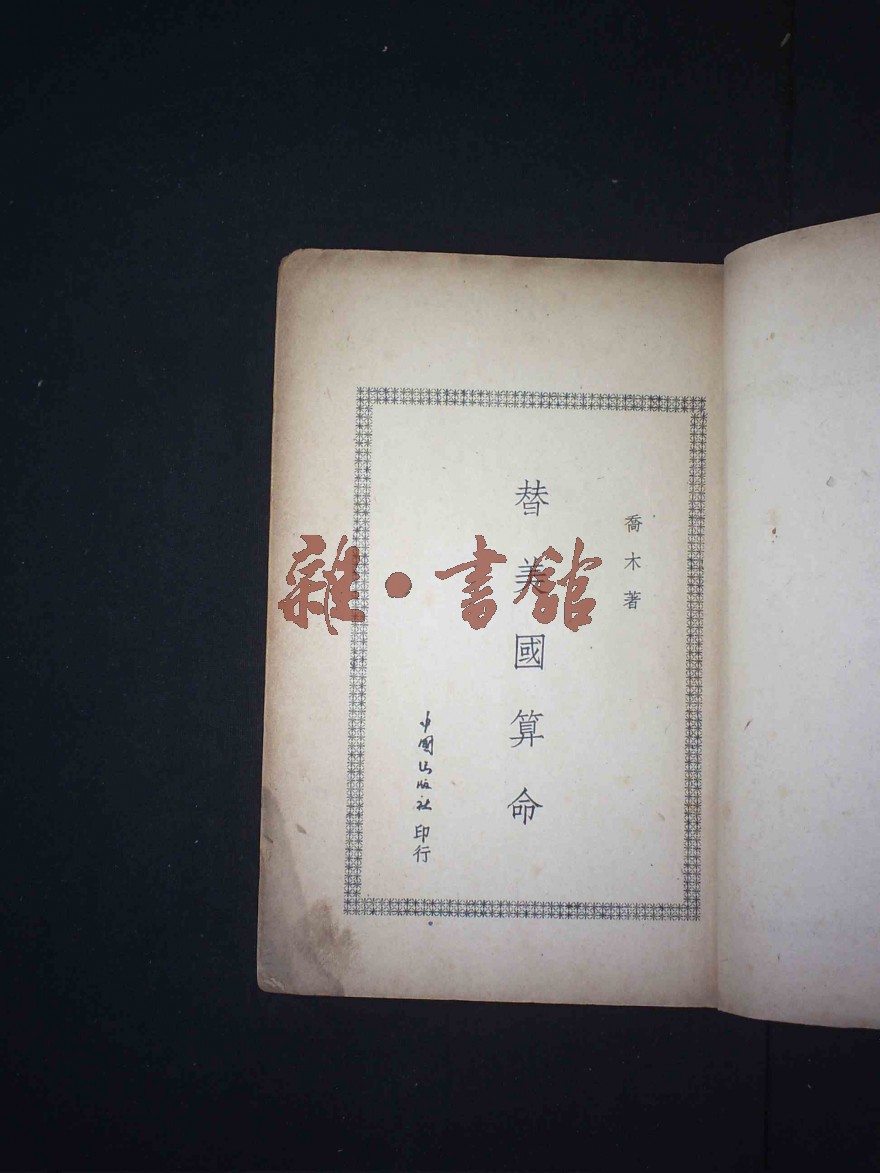 喬木著
替美國算命
中國出版社印行
雜·書館